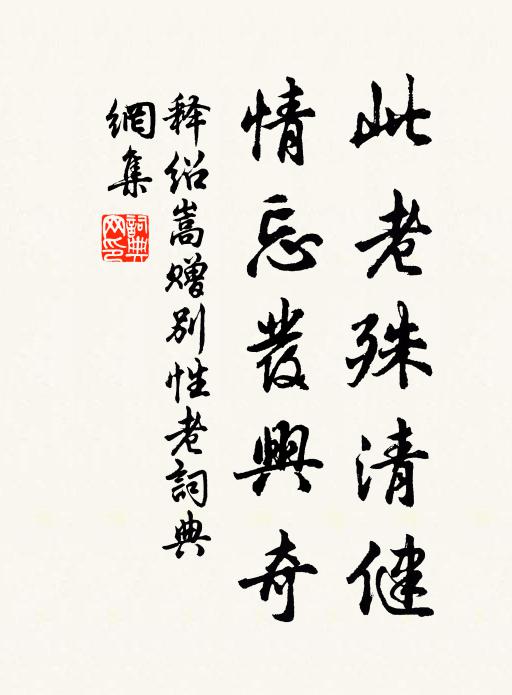 此老殊清健
情忘發興奇
释绍嵩赠别性老詞典
網集
詞典網印